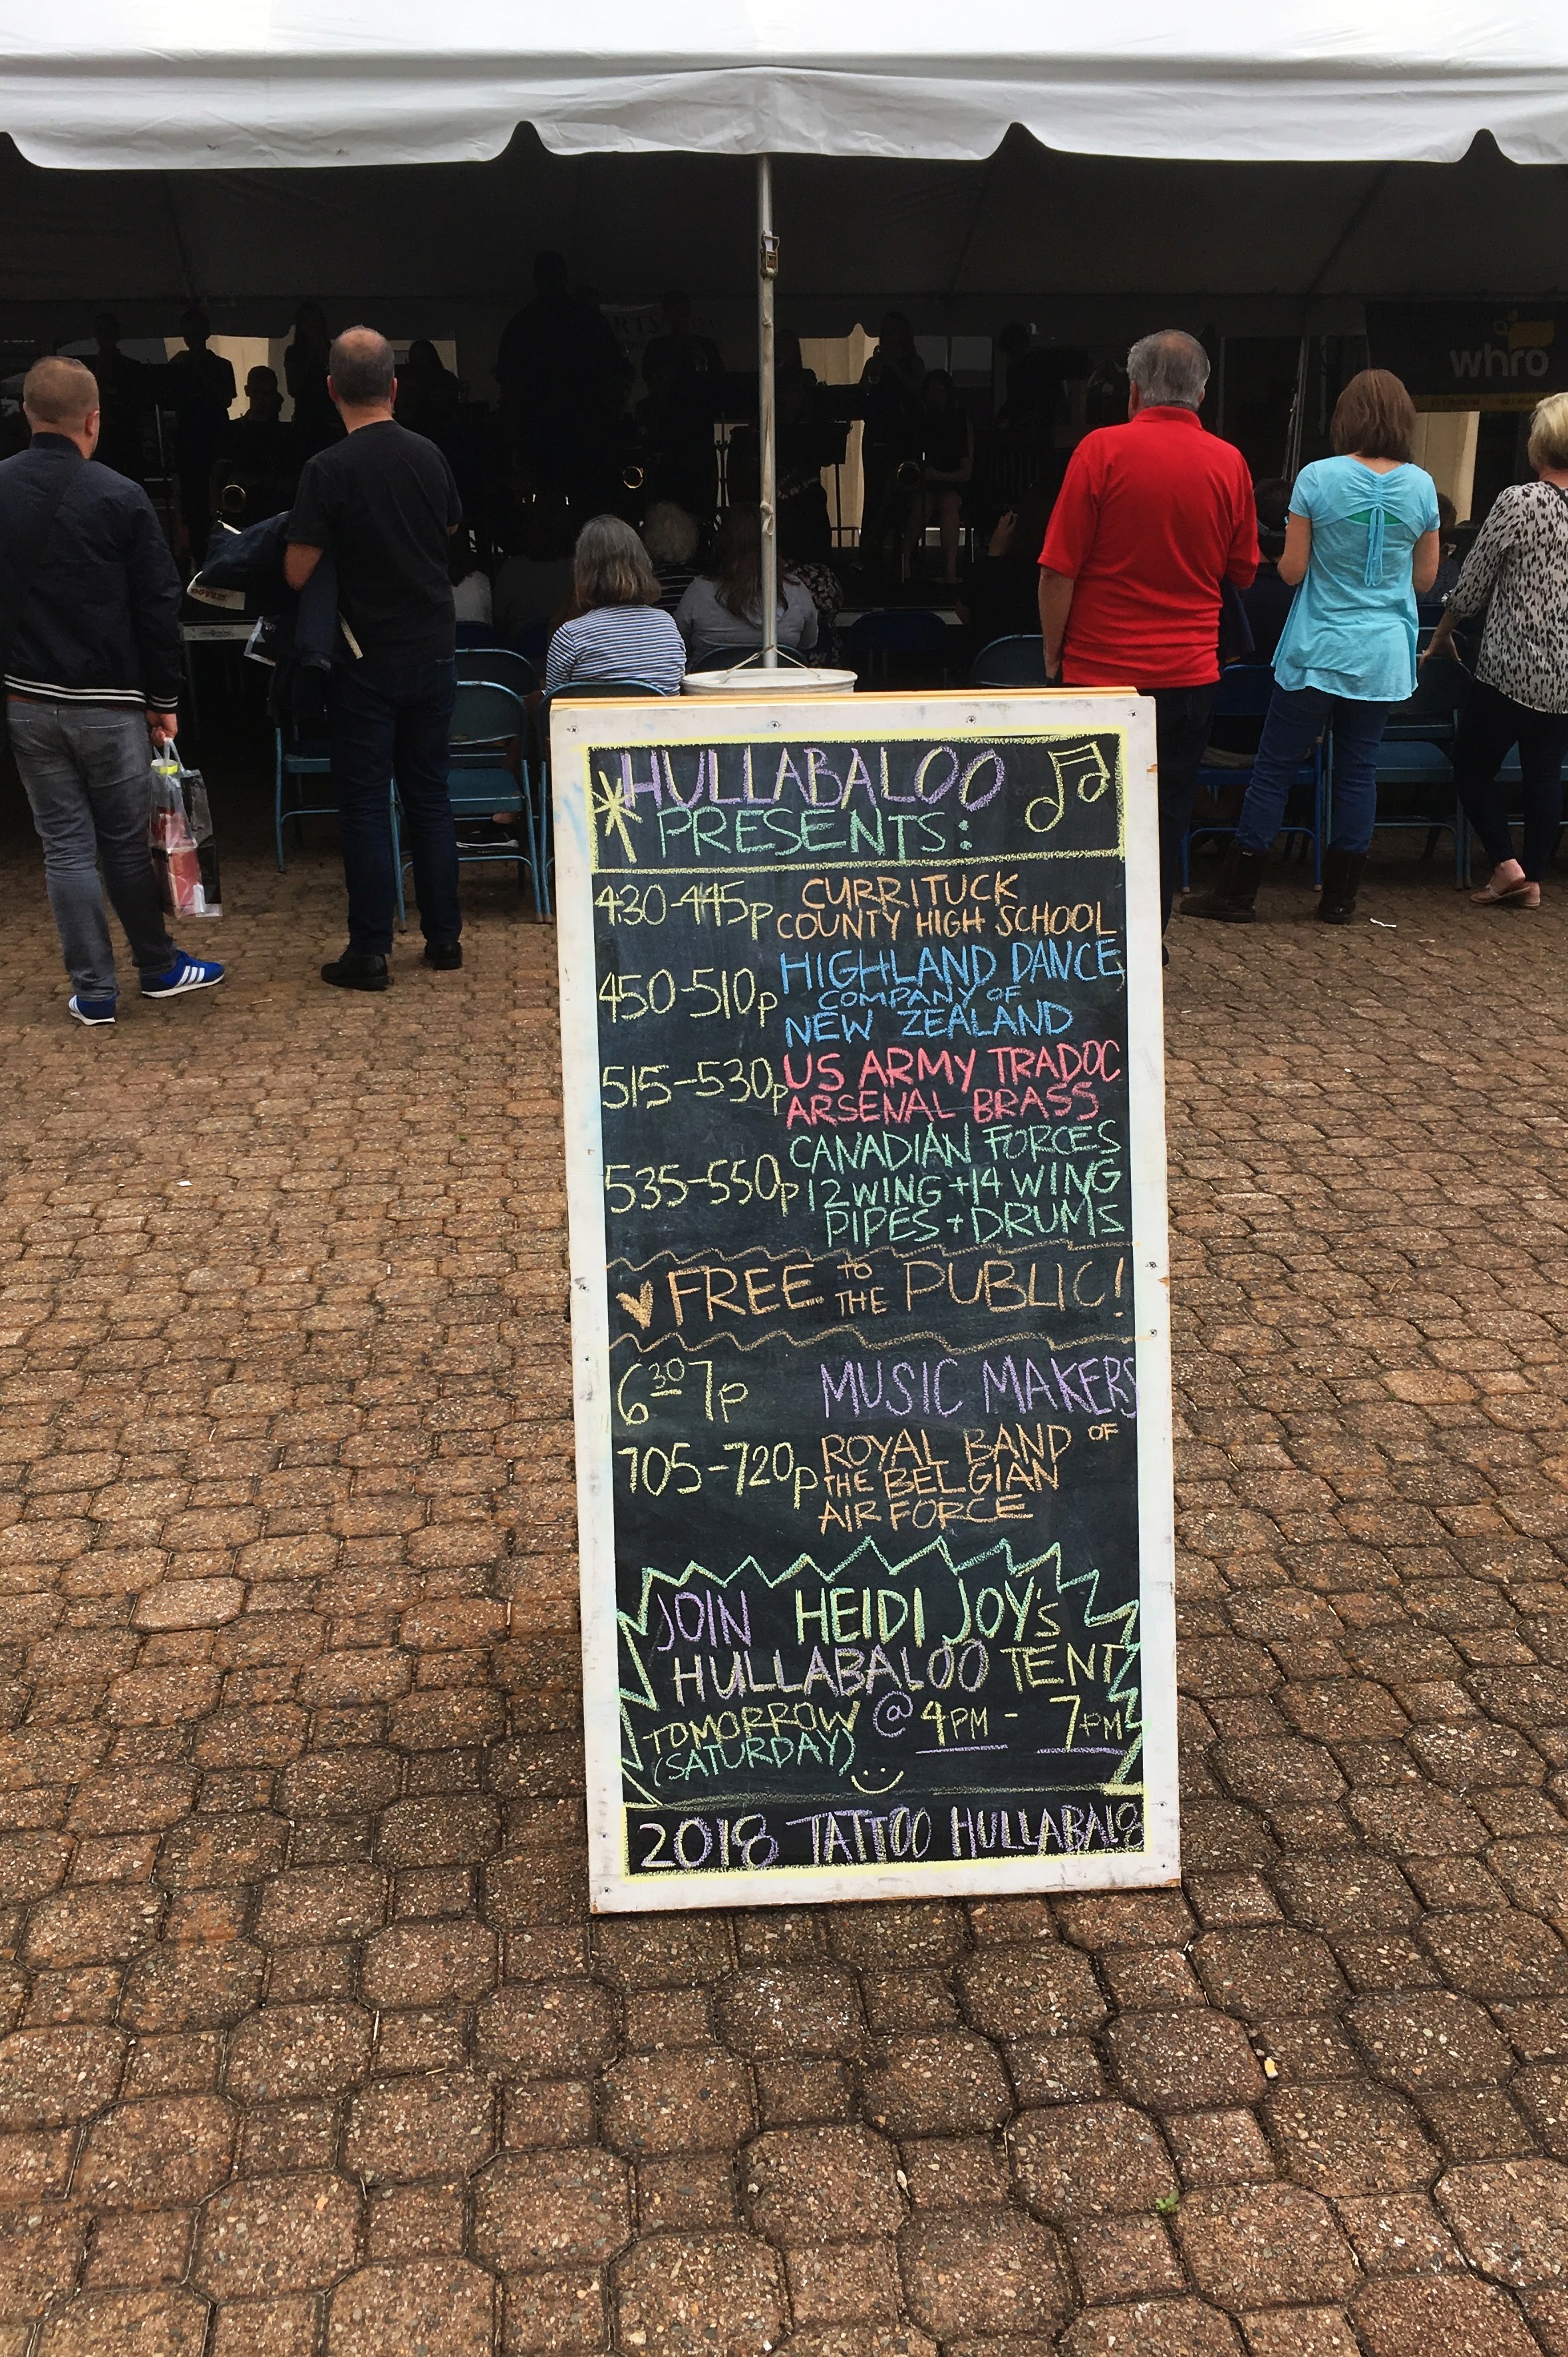 whro
HULLABALOO
PRESENTS:
430-445p CURRITUCK
COUNTY HIGH SCHOOL
450-510p HIGHLAND DANCE
COMPANY OF
NEW ZEALAND
515-530p US ARMY TRADOC
ARSENAL BRASS
535-550p CANADIAN FORCES
12 WING + 14 WING
PIPES + DRUMS
FREE TO THE PUBLIC!
630 7p MUSIC MAKERS
705-720p ROYAL BAND OF
THE BELGIAN
AIR FORCE
JOIN HEIDI JOY'S
HULLABALOO TENT
TOMORROW @ 4PM - 7PM
(SATURDAY)
2018 TATTOO HULLABALOO